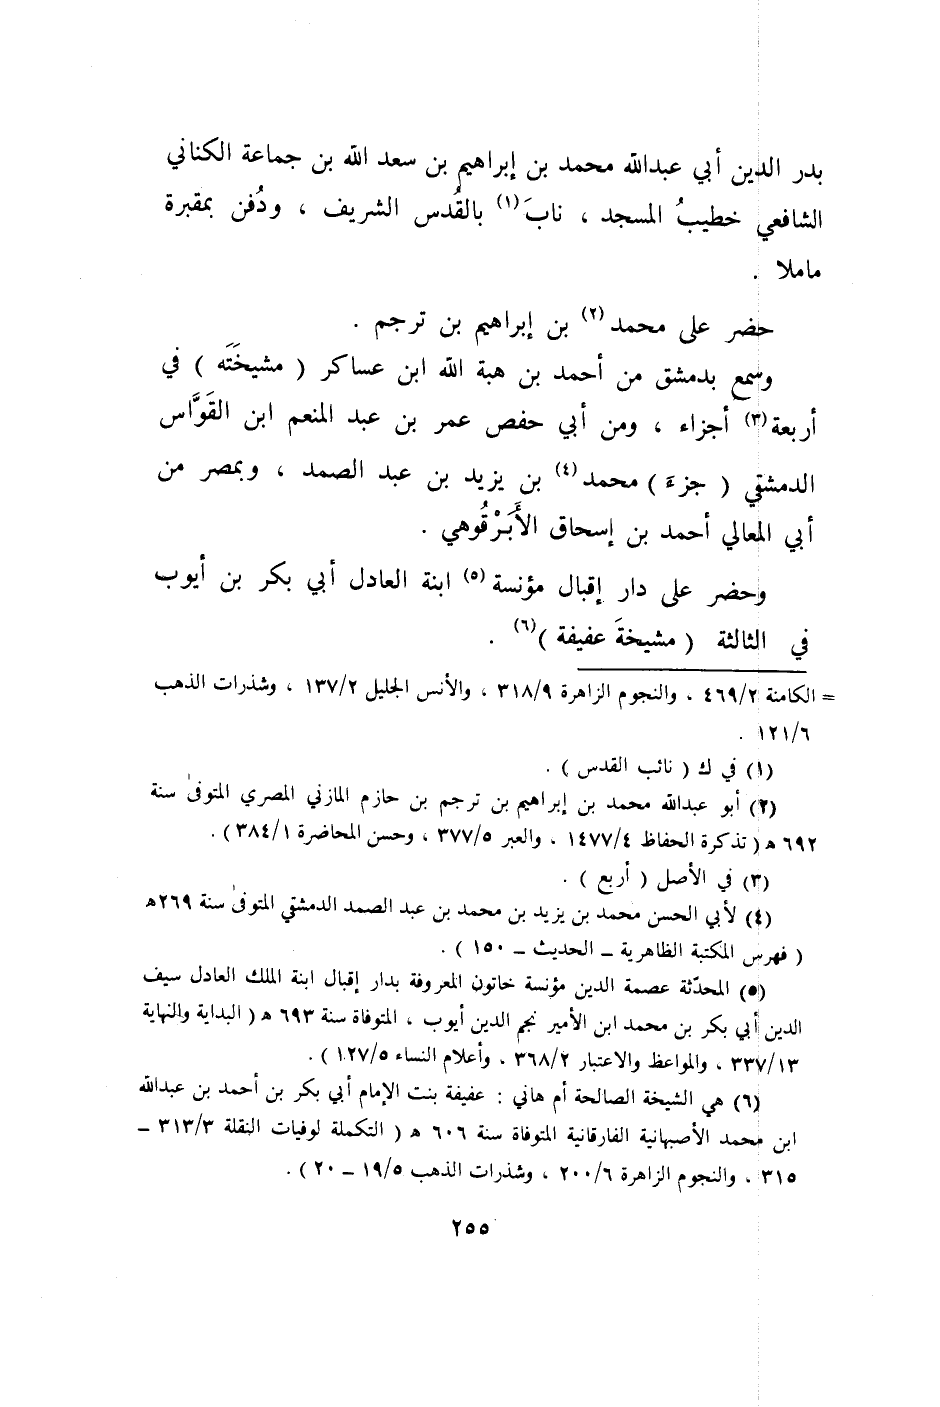 بدر الدين أبي عبدالله محمد بن إبراهيم بن سعد الله بن جماعة الكناني
الشافعي خطيبُ المسجد ، نابَ(١) بالقُدس الشريف ، ودُفن بمقبرة
ماملا .
حضر على محمد(٢) بن إبراهيم بن ترجم .
وسمع بدمشق من أحمد بن هبة الله ابن عساكر ( مشيختَه ) في
أربعة(٣) أجزاء ، ومن أبي حفص عمر بن عبد المنعم ابن القَوَّاس
الدمشقي ( جزءَ ) محمد(٤) بن يزيد بن عبد الصمد ، وبمصر من
أبي المعالي أحمد بن إسحاق الأَبَرْقُوهي .
وحضر على دار إقبال مؤنسة(٥) ابنة العادل أبي بكر بن أيوب
في الثالثة ( مشيخةَ عفيفة )(٦) .
= الكامنة ٤٦٩/٢ ، والنجوم الزاهرة ٣١٨/٩ ، والأنس الجليل ١٣٧/٢ ، وشذرات الذهب
١٢١/٦ .
(١) في ك ( نائب القدس ) .
(٢) أبو عبدالله محمد بن إبراهيم بن ترجم بن حازم المازني المصري المتوفىٰ سنة
٦٩٢ هـ ( تذكرة الحفاظ ١٤٧٧/٤ ، والعبر ٣٧٧/٥ ، وحسن المحاضرة ٣٨٤/١ ) .
(٣) في الأصل ( أربع ) .
(٤) لأبي الحسن محمد بن يزيد بن محمد بن عبد الصمد الدمشقي المتوفىٰ سنة ٢٦٩هـ
( فهرس المكتبة الظاهرية ــ الحديث ــ ١٥٠ ) .
(٥) المحدّثة عصمة الدين مؤنسة خاتون المعروفة بدار إقبال ابنة الملك العادل سيف
الدين أبي بكر بن محمد ابن الأمير نجم الدين أيوب ، المتوفاة سنة ٦٩٣ هـ ( البداية والنهاية
٣٣٧/١٣ ، والمواعظ والاعتبار ٣٦٨/٢ ، وأعلام النساء ١٢٧/٥ ) .
(٦) هي الشيخة الصالحة أم هاني : عفيفة بنت الإمام أبي بكر بن أحمد بن عبدالله
ابن محمد الأصبهانية الفارقانية المتوفاة سنة ٦٠٦ هـ ( التكملة لوفيات النقلة ٣١٣/٣ ــ
٣١٥ ، والنجوم الزاهرة ٢٠٠/٦ ، وشذرات الذهب ١٩/٥ ــ ٢٠ ) .
٢٥٥